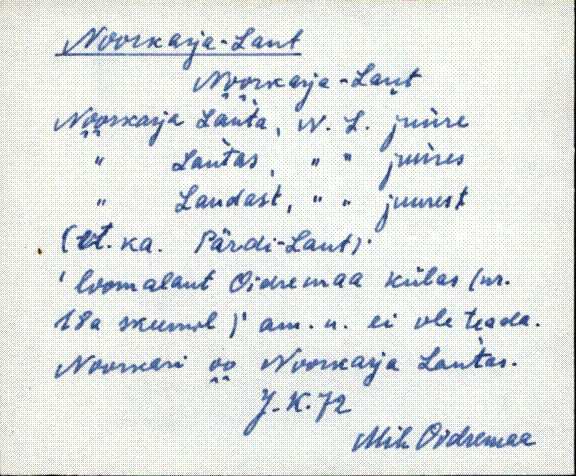 Noorkarja-Laut
Noorkarja-Laut
Noorkarja Lauta, N. L. juure
" Lautas, " " juures
" Laudast, " " juurest
(vt. ka. Pärdi-Laut).
'loomalaut Oidremaa külas (nr.
18a skeemil)' am. n. ei ole teada.
Noorkari oo Noorkarja Lautas.
J.K.72
Mih Oidremaa